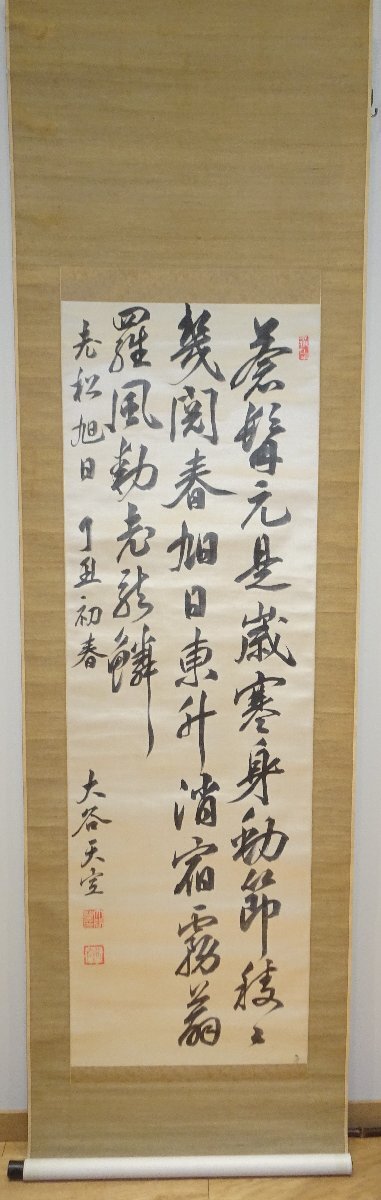 蒼髯元是歳寒身勁節稜々
幾閲春旭日東升消宿霧
羅風動老龍鱗
老松旭日 丁丑初春
大谷天空